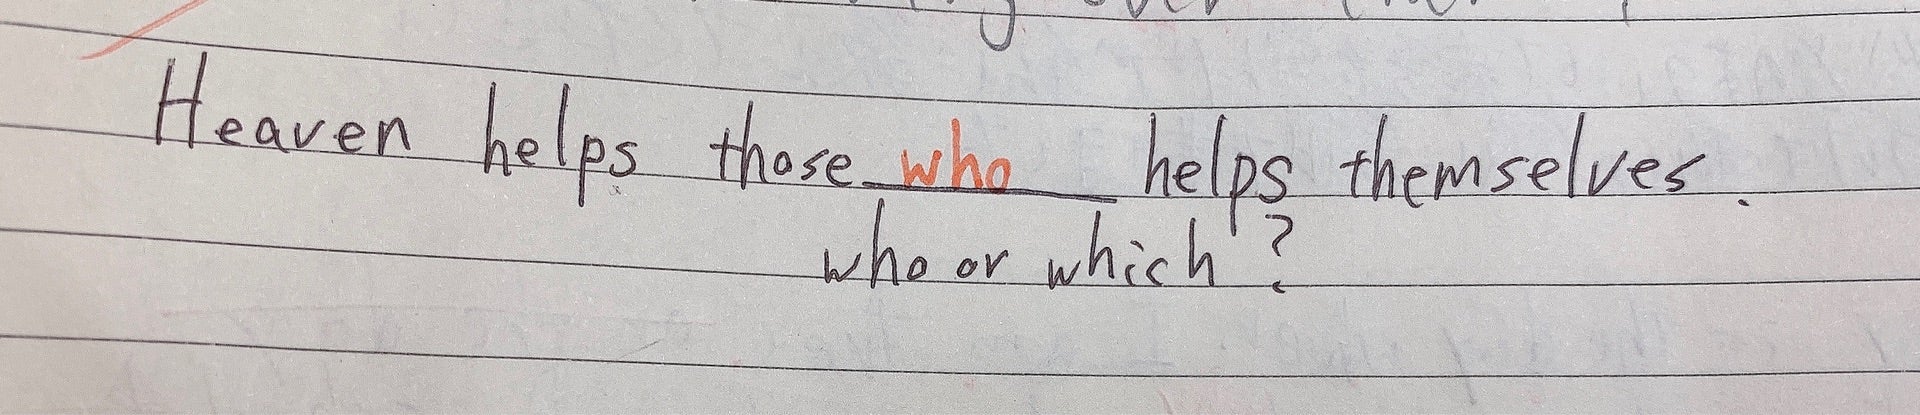 Heaven helps those who helps themselves.
who or which?